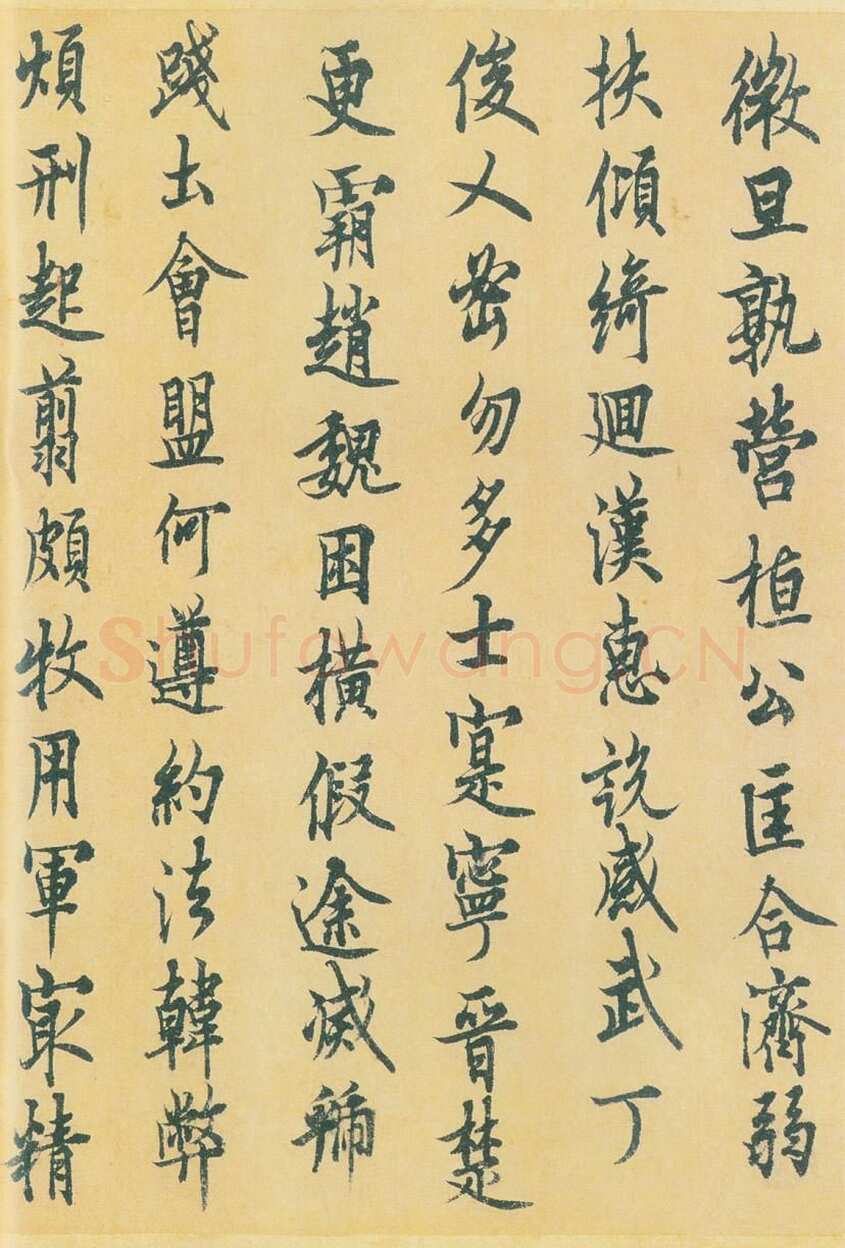 微旦孰營桓公匡合濟弱
扶傾綺迴漢惠說感武丁
俊乂密勿多士寔寧晉楚
更霸趙魏困橫假途滅虢
踐土會盟何遵約法韓弊
煩刑起翦頗牧用軍最精
Shufawang.CN